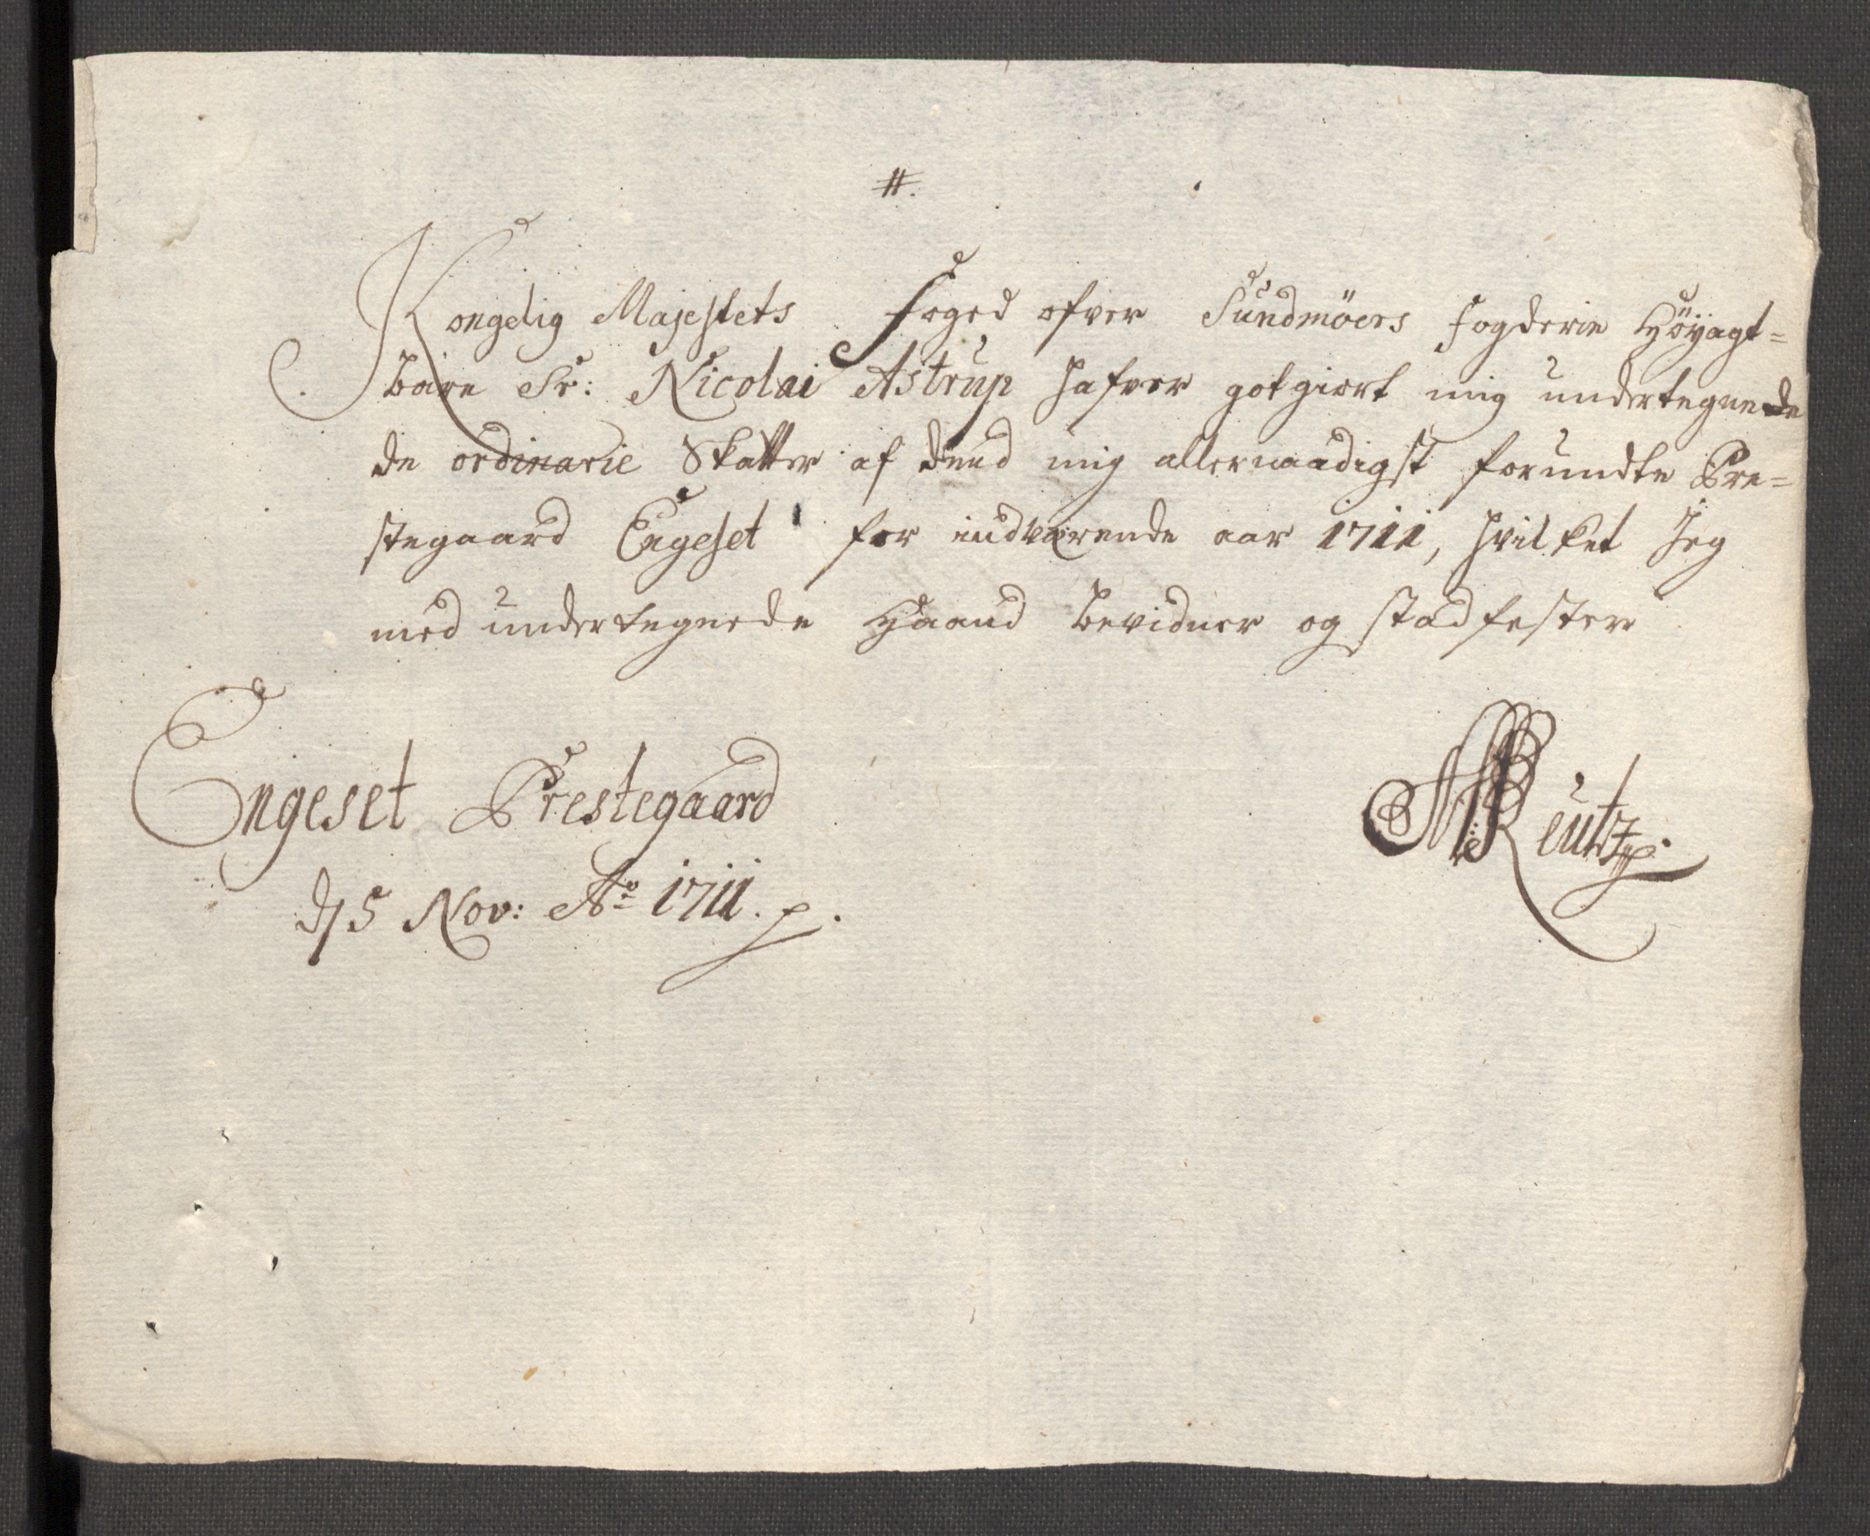 #.
Kongelig Majestets Foged ofver Sundmöers fogderie Höyagt=
bare Sr: Nicolai Astrup hafver gotgiort mig undertegnede
de ordinarie Skatter af dend mig allernaadigst forundte Pre=
stegaard Engeset for indværende aar 1711, hvilket Jeg
med undertegnede Haand bevidner og stadfester
Engeset Prestegaard
d/5 Nov: Ao 1711. p.
Reutz p.